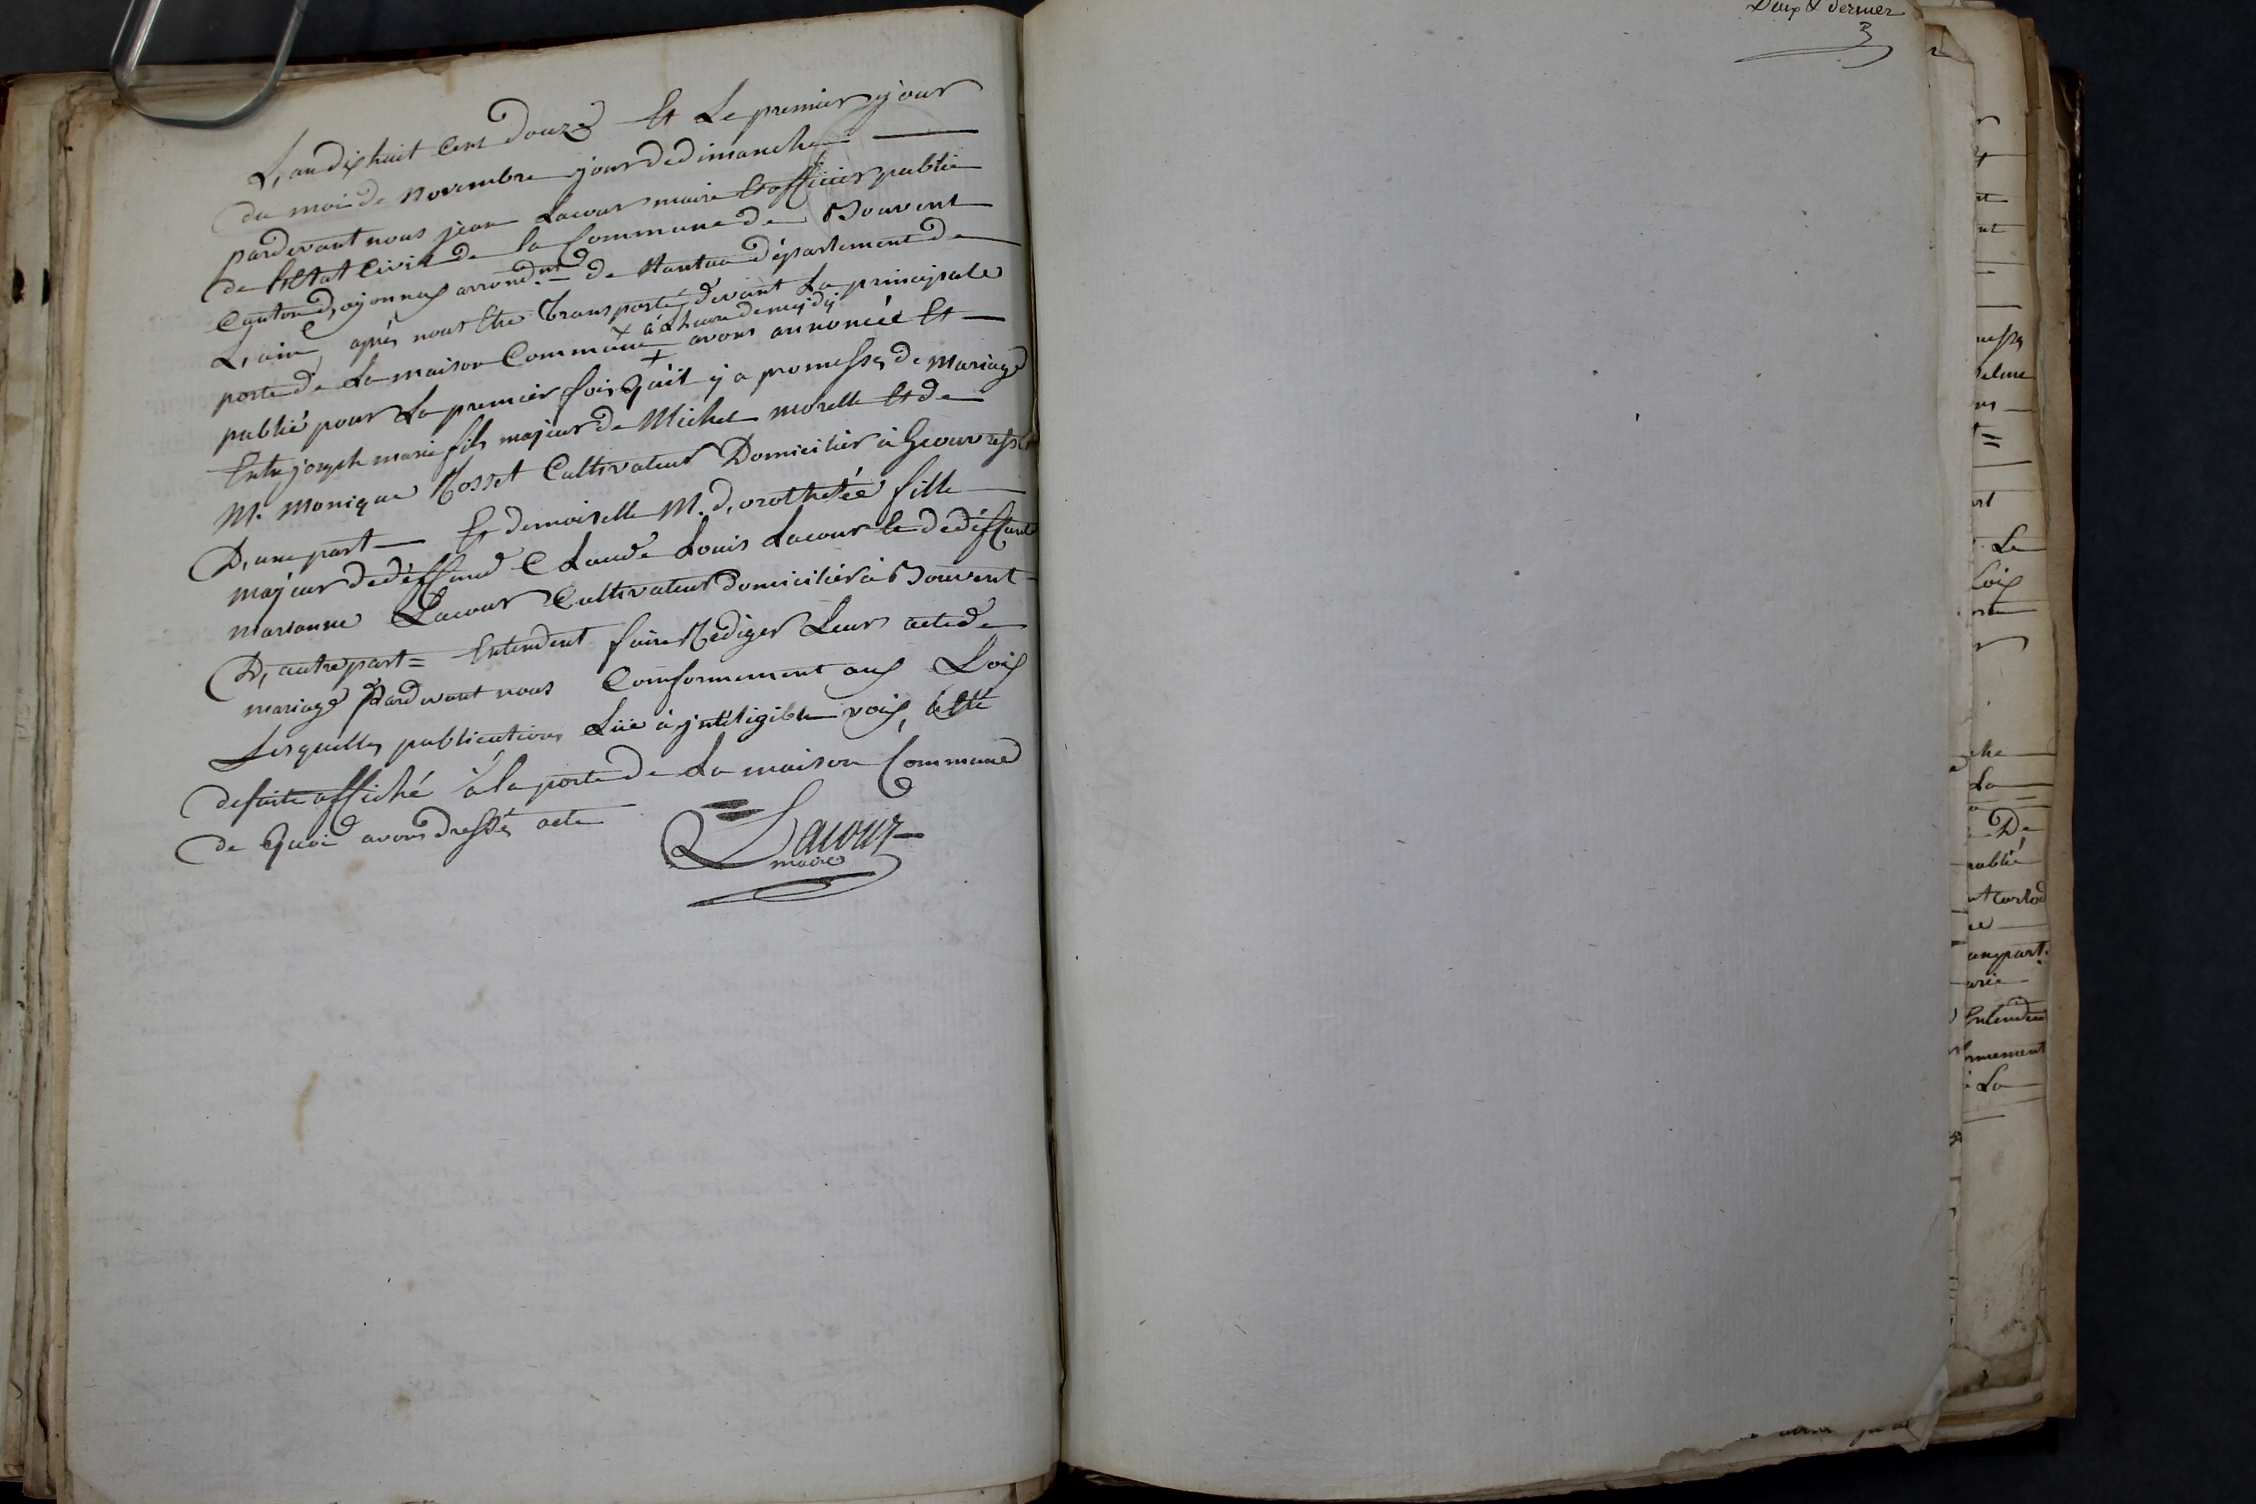 L,an dix huit Cent douze Et Le premier jour
du moi de novembre jour de dimanche
pardevant nous jean Lacour maire Et officier public
de l'Etat Civil de la Commune de Bouvent
Canton d,oyonnax arrond.nt de Nantua département de
L,ain, après nous Etre transporté devant La principale
x à Lheure de mijdij
porte de La maison Commune + avons annoncée Et
publié pour La premier fois qu'il y a promesse de mariage
Entre joseph marie fils majeur de Michel morelle Et de
M. Monique Rosset Cultivateur Domicilier à Geovresset
D,une part Et demoiselle M. d,orothetée fille
majeur de déffund Claude Louis Lacour le de déffunte
marianne Lacour Cultivateur domicilier à Bouvent
D, autre part = Entendent faire Rédiger Leur acte de
mariage Pardevant nous Comformement aux Loix
Lesquelles publications Lüe à jntéligible voix, a Eté
de suite affiché à la porte de La maison Commune
de Quoi avons dressé acte
Lacour
maire
Deux & dernier